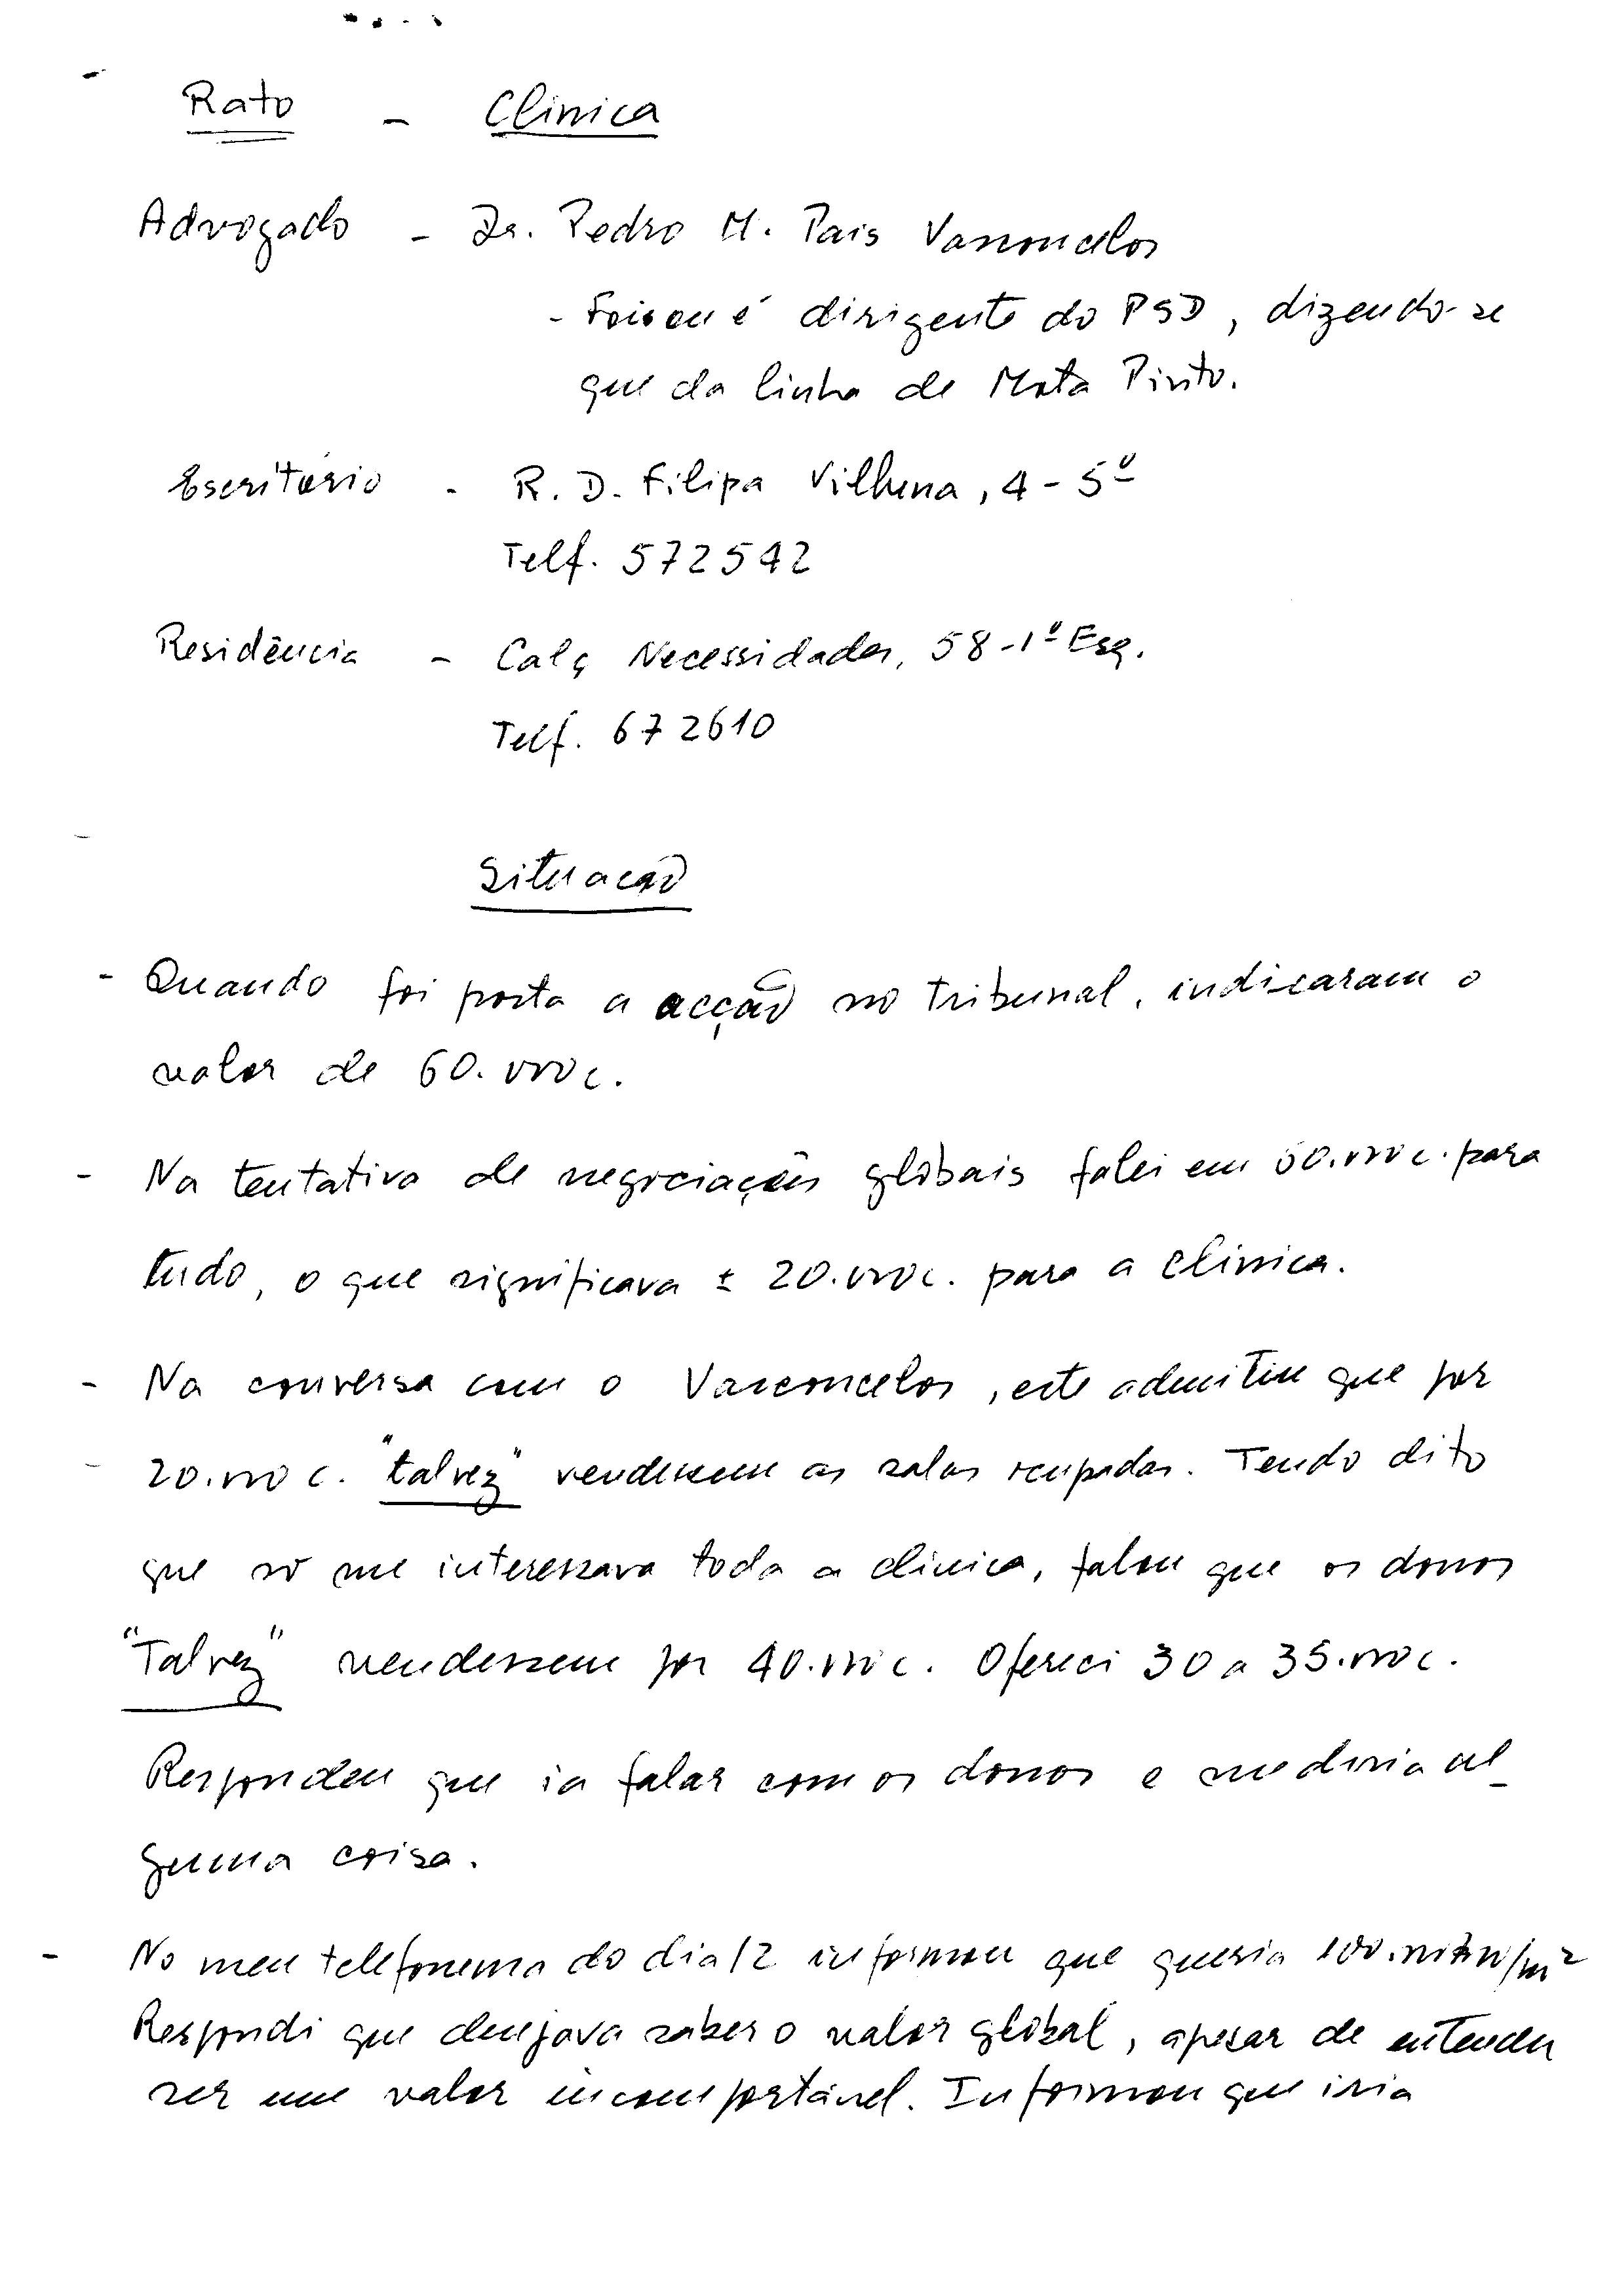 Rato - Clinica
Advogado - Dr. Pedro M. Pais Vasconcelos
- Foi ou é dirigente do PSD, dizendo-se
que da linha de Mota Pinto.
Escritório - R. D. Filipa Vilhena, 4-5º
Telf. 572542
Residência - Calç Necessidades, 58-1º Esq.
Telf. 672610
Situação
- Quando foi posta a acção no tribunal, indicaram o
valor de 60.000 c.
- Na tentativa de negociações globais falei em 50.000 c. para
tudo, o que significava ± 20.000 c. para a clinica.
- Na conversa com o Vasconcelos, este admitiu que por
- 20.000 c. "talvez" vendessem as salas ocupadas. Tendo dito
que só me interessava toda a clinica, falou que os donos
"Talvez" vendessem por 40.000 c. Ofereci 30 a 35.000 c.
Respondeu que ia falar com os donos e me diria al-
guma coisa.
- No meu telefonema do dia 12 informou que queria 100.000$00/m²
Respondi que desejava saber o valor global, apesar de entender
ser um valor incomportável. Informou que iria